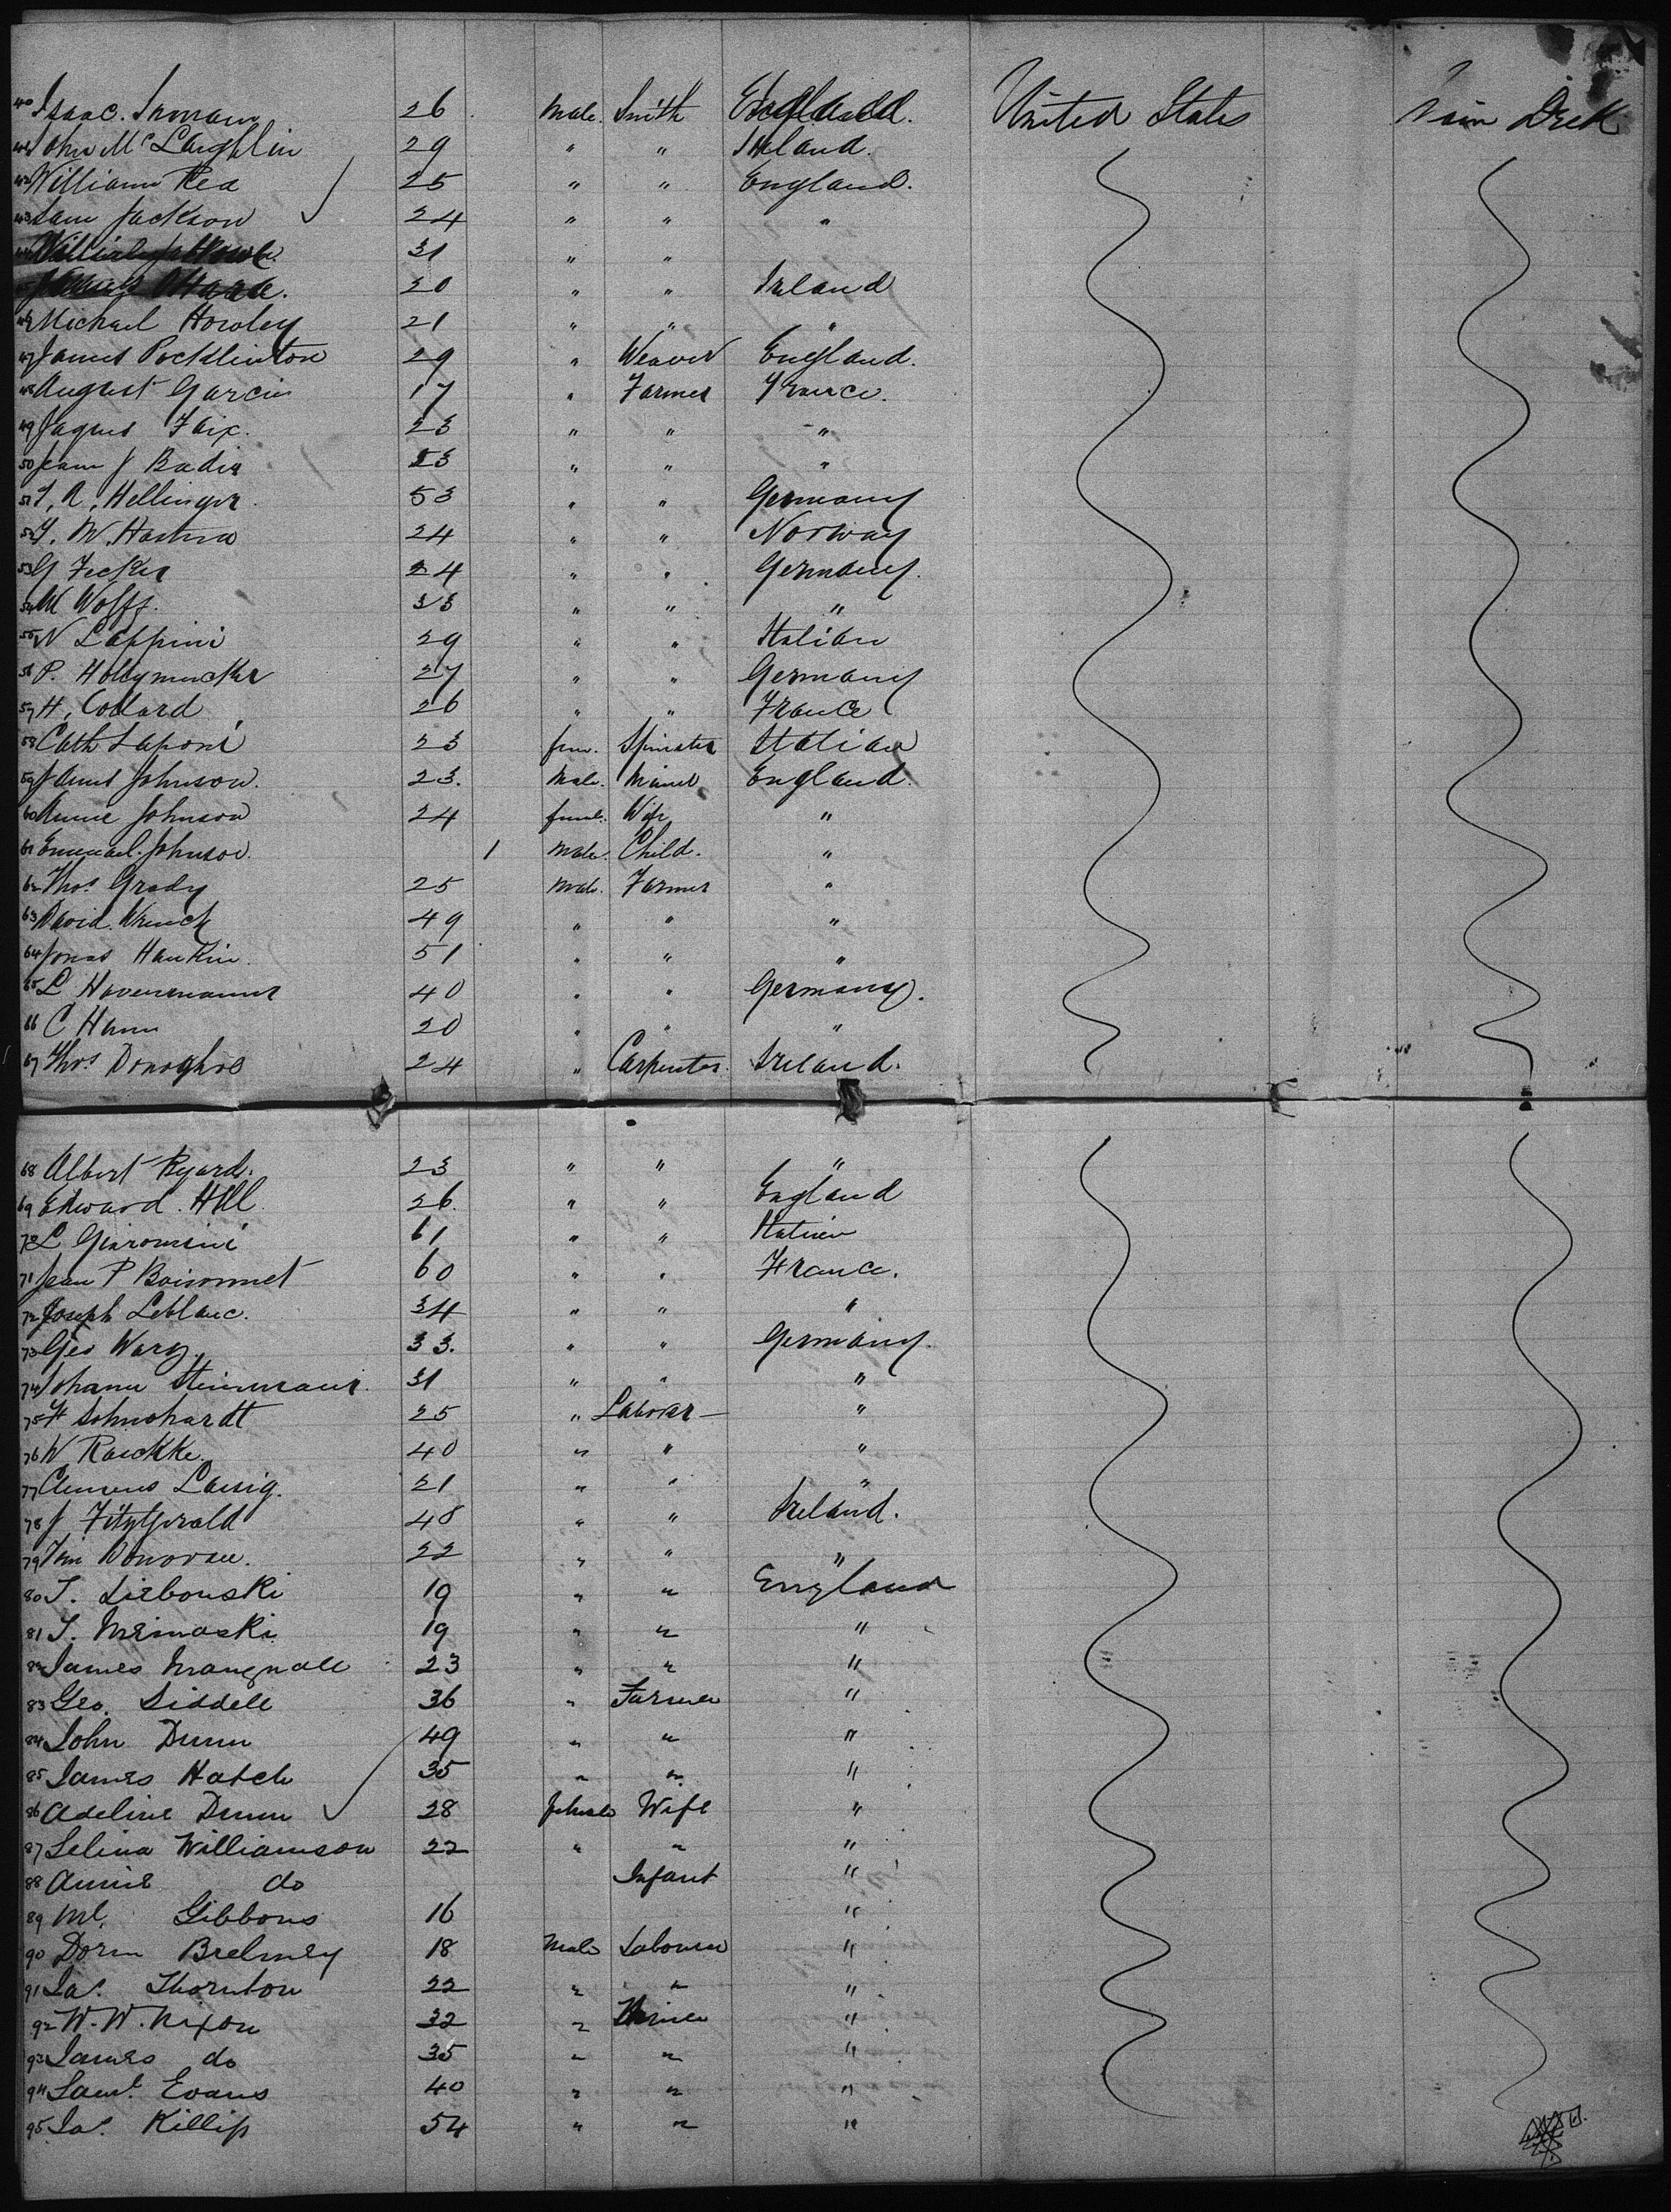 40 Isaac. Inman 26 Male. Smith England. United States Main Deck
41 John McLaughlin 29 " " Ireland.
42 William Rea 25 " " England.
43 Sam Jackson 24 " " "
44 31 " "
45 O'Hara. 20 " " Ireland
46 Michael Howley 21 " " "
47 James Pocklinton 29 " Weaver England.
48 August Garcin 17 " Farmer France.
49 Jaques Faix. 23 " " "
50 Jean J Badia 23 " " "
51 Hellinger 53 " " Germany
52 24 " " Norway
53 G Fecker 24 " " Germany.
54 M Wolff. 33 " " "
55 N Lappini 29 " " Italian
56 P. 27 " " Germany
57 H. Collard 26 " " France
58 Cath Laponi 23 fem. Spinster Italian
59 James Johnson. 23. Male. Miner England.
60 Annie Johnson 24 female. Wife "
61 Emanuel. Johnson. 1 Male. Child. "
62 Thos. Grady 25 Male. Farmer "
63 David. Wrench 49 " " "
64 Jonas Hankin. 51 " " "
65 L Havenmann 40 " " Germany.
66 C Hann 20 " " "
67 Thos. Donoghoe 24 " Carpenter. Ireland.
68 Albert Ryard. 23 " " "
69 Edward. Hill 26. " " England
70 L Giaromini 61 " " Italian
71 Jean P Boisonnet 60 " " France.
72 Joseph Leblanc. 34 " " "
73 Geo Warz. 33. " " Germany.
74 Johann Steinmann. 31 " " "
75 25 " Laborer "
76 W Raschke. 40 " " "
77 Clemens Lansig. 21 " " "
78 J Fitztgerald 48 " " Ireland.
79 Tim Donovan. 22 " " "
80 S. Liebouski 19 " " England
81 19 " " "
82 James Mangnall 23 " " "
83 Geo. Siddell 36 " Farmer "
84 John Dunn 49 " " "
85 James Hatch 35 " " "
86 Adeline Dunn 28 female Wife "
87 Selina Williamson 22 " " "
88 Annie do Infant "
89 Ml. Gibbons 16 "
90 18 Male Labourer "
91 Jas. Thornton 22 " " "
92 W. W. Nixon 32 " Miner "
93 James do 35 " " "
94 Saml. Evans 40 " " "
95 Jas. Killip 54 " " "